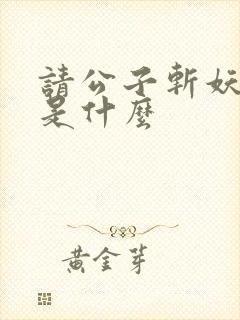 請公子斬妖
是什麼
黃金芽